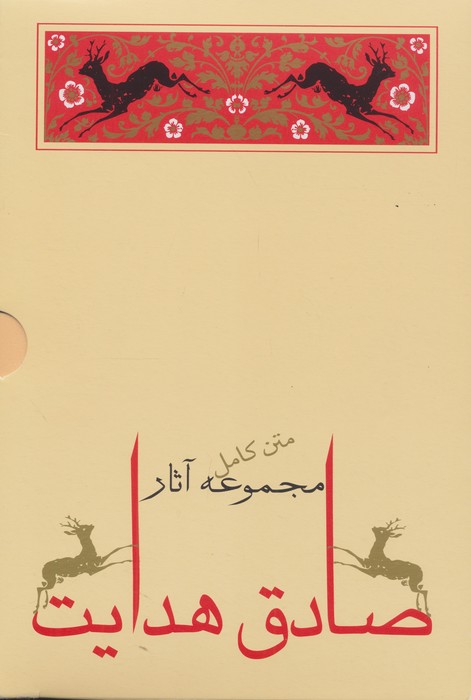 متن کامل
مجموعه آثار
صادق هدایت